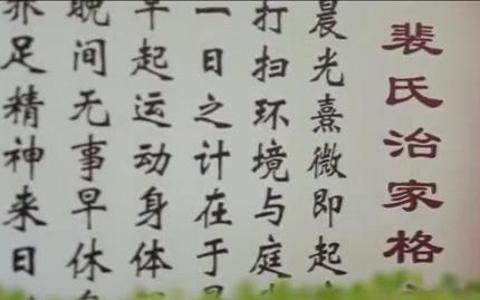 裴氏治家格
晨光熹微即起
打扫环境与庭
一日之计在于
早起运动身体
晚间无事早休
养足精神来日